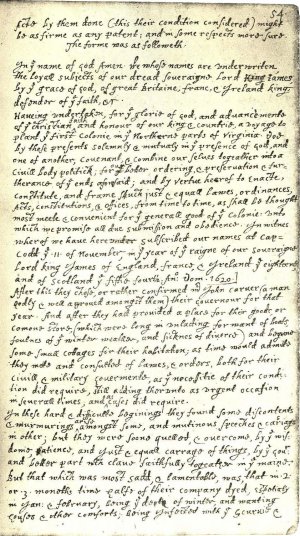 54
ficte by them done (this their condition considered) might
be as firme as any patent; and in some respects more sure.
The forme was as followeth.
In yᵉ name of god Amen. We whose names are underwriten,
the loyall subjects of our dread soveraigne Lord King James
by yᵉ grace of god, of great Britaine, franc, & Ireland king,
defender of yᵉ faith, &c
Haveing undertaken, for yᵉ glorie of god, and advancemente
of yᵉ christian faith and honour of our king & countrie, a voyage to
plant yᵉ first colonie in yᵉ Northerne parts of Virginia. Doe
by these presents solemnly & mutualy in yᵉ presence of god, and
one of another, covenant, & combine our selves togeather into a
Civill body politick; for our better ordering, & preservation & fur=
therance of yᵉ ends aforesaid; and by vertue hearof to enacte,
constitute, and frame shuch just & equall Lawes, ordinances,
Acts, constitutions, & offices, from time to time, as shall be thought
most meete & convenient for yᵉ generall good of yᵉ colonie: unto
which we promise all due submission and obedience. In witnes
wherof we have hereunder subscribed our names at cap=
Codd yᵉ ·11· of November, in yᵉ year of yᵉ raigne of our soveraigne
Lord king James of England, franc, & Ireland yᵉ eighteenth
and of Scotland yᵉ fiftie fourth. Anᵒ: Dom. 1620.
After this they chose, or rather confirmed mʳ John carver (a man
godly & well approved amongst them) their Governour for that
year. And after they had provided a place for their goods, or
comone store, (which were long in unlading for want of boats,
foulnes of yᵉ winter weather, and sicknes of diverce) and begune
some small cotages for their habitation; as time would admitte
they mette and consulted of lawes, & orders, both for their
civill, & military Govermente, as yᵉ necessitie of their condi=
tion did require, still adding therunto as urgent occasion
in severall times, and as cases did require.
In these hard & difficulte beginings they found some discontents
& murmurings arise amongst some, and mutinous speeches & cariags
in other; but they were soone quelled, & overcome, by yᵉ wis=
dome, patience, and just & equall carrage of things, by yᵉ Govʳ
and better part wch clave faithfully togeather in yᵉ maine.
But that which was most sadd, & lamentable, was, that in 2·
or ·3· moneths time halfe of their company dyed, espetialy
in Jan: & february, being yᵉ depth of winter, and wanting
houses & other comforts; being infected with yᵉ scurvie &